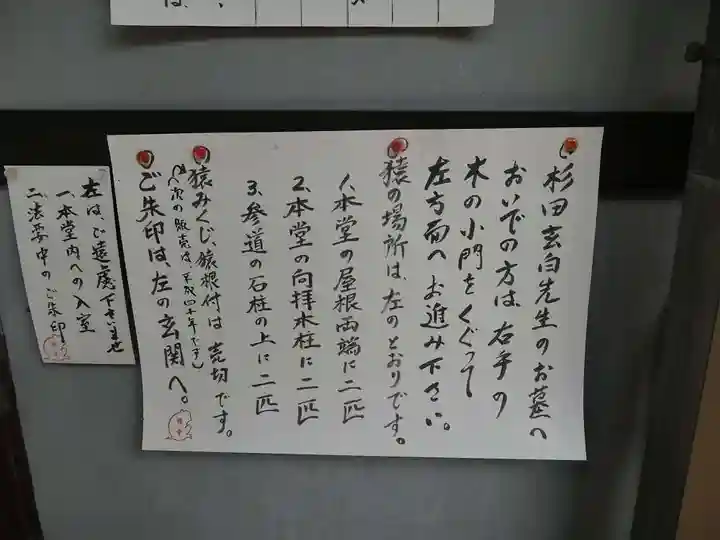 杉田玄白先生のお墓へ
おいでの方は、右手の
木の小門をくぐって
左方面へお進み下さい。
猿の場所は、左のとおりです。
1、本堂の屋根両端に二匹
2、本堂の向拝木柱に二匹
3、参道の石柱の上に二匹
猿みくじ、猿根付は売切です。
次の販売は、平成四十年です)
ご朱印は、左の玄関へ。
左は、ご遠慮下さいませ
一、本堂内への入室
二、法要中のご朱印